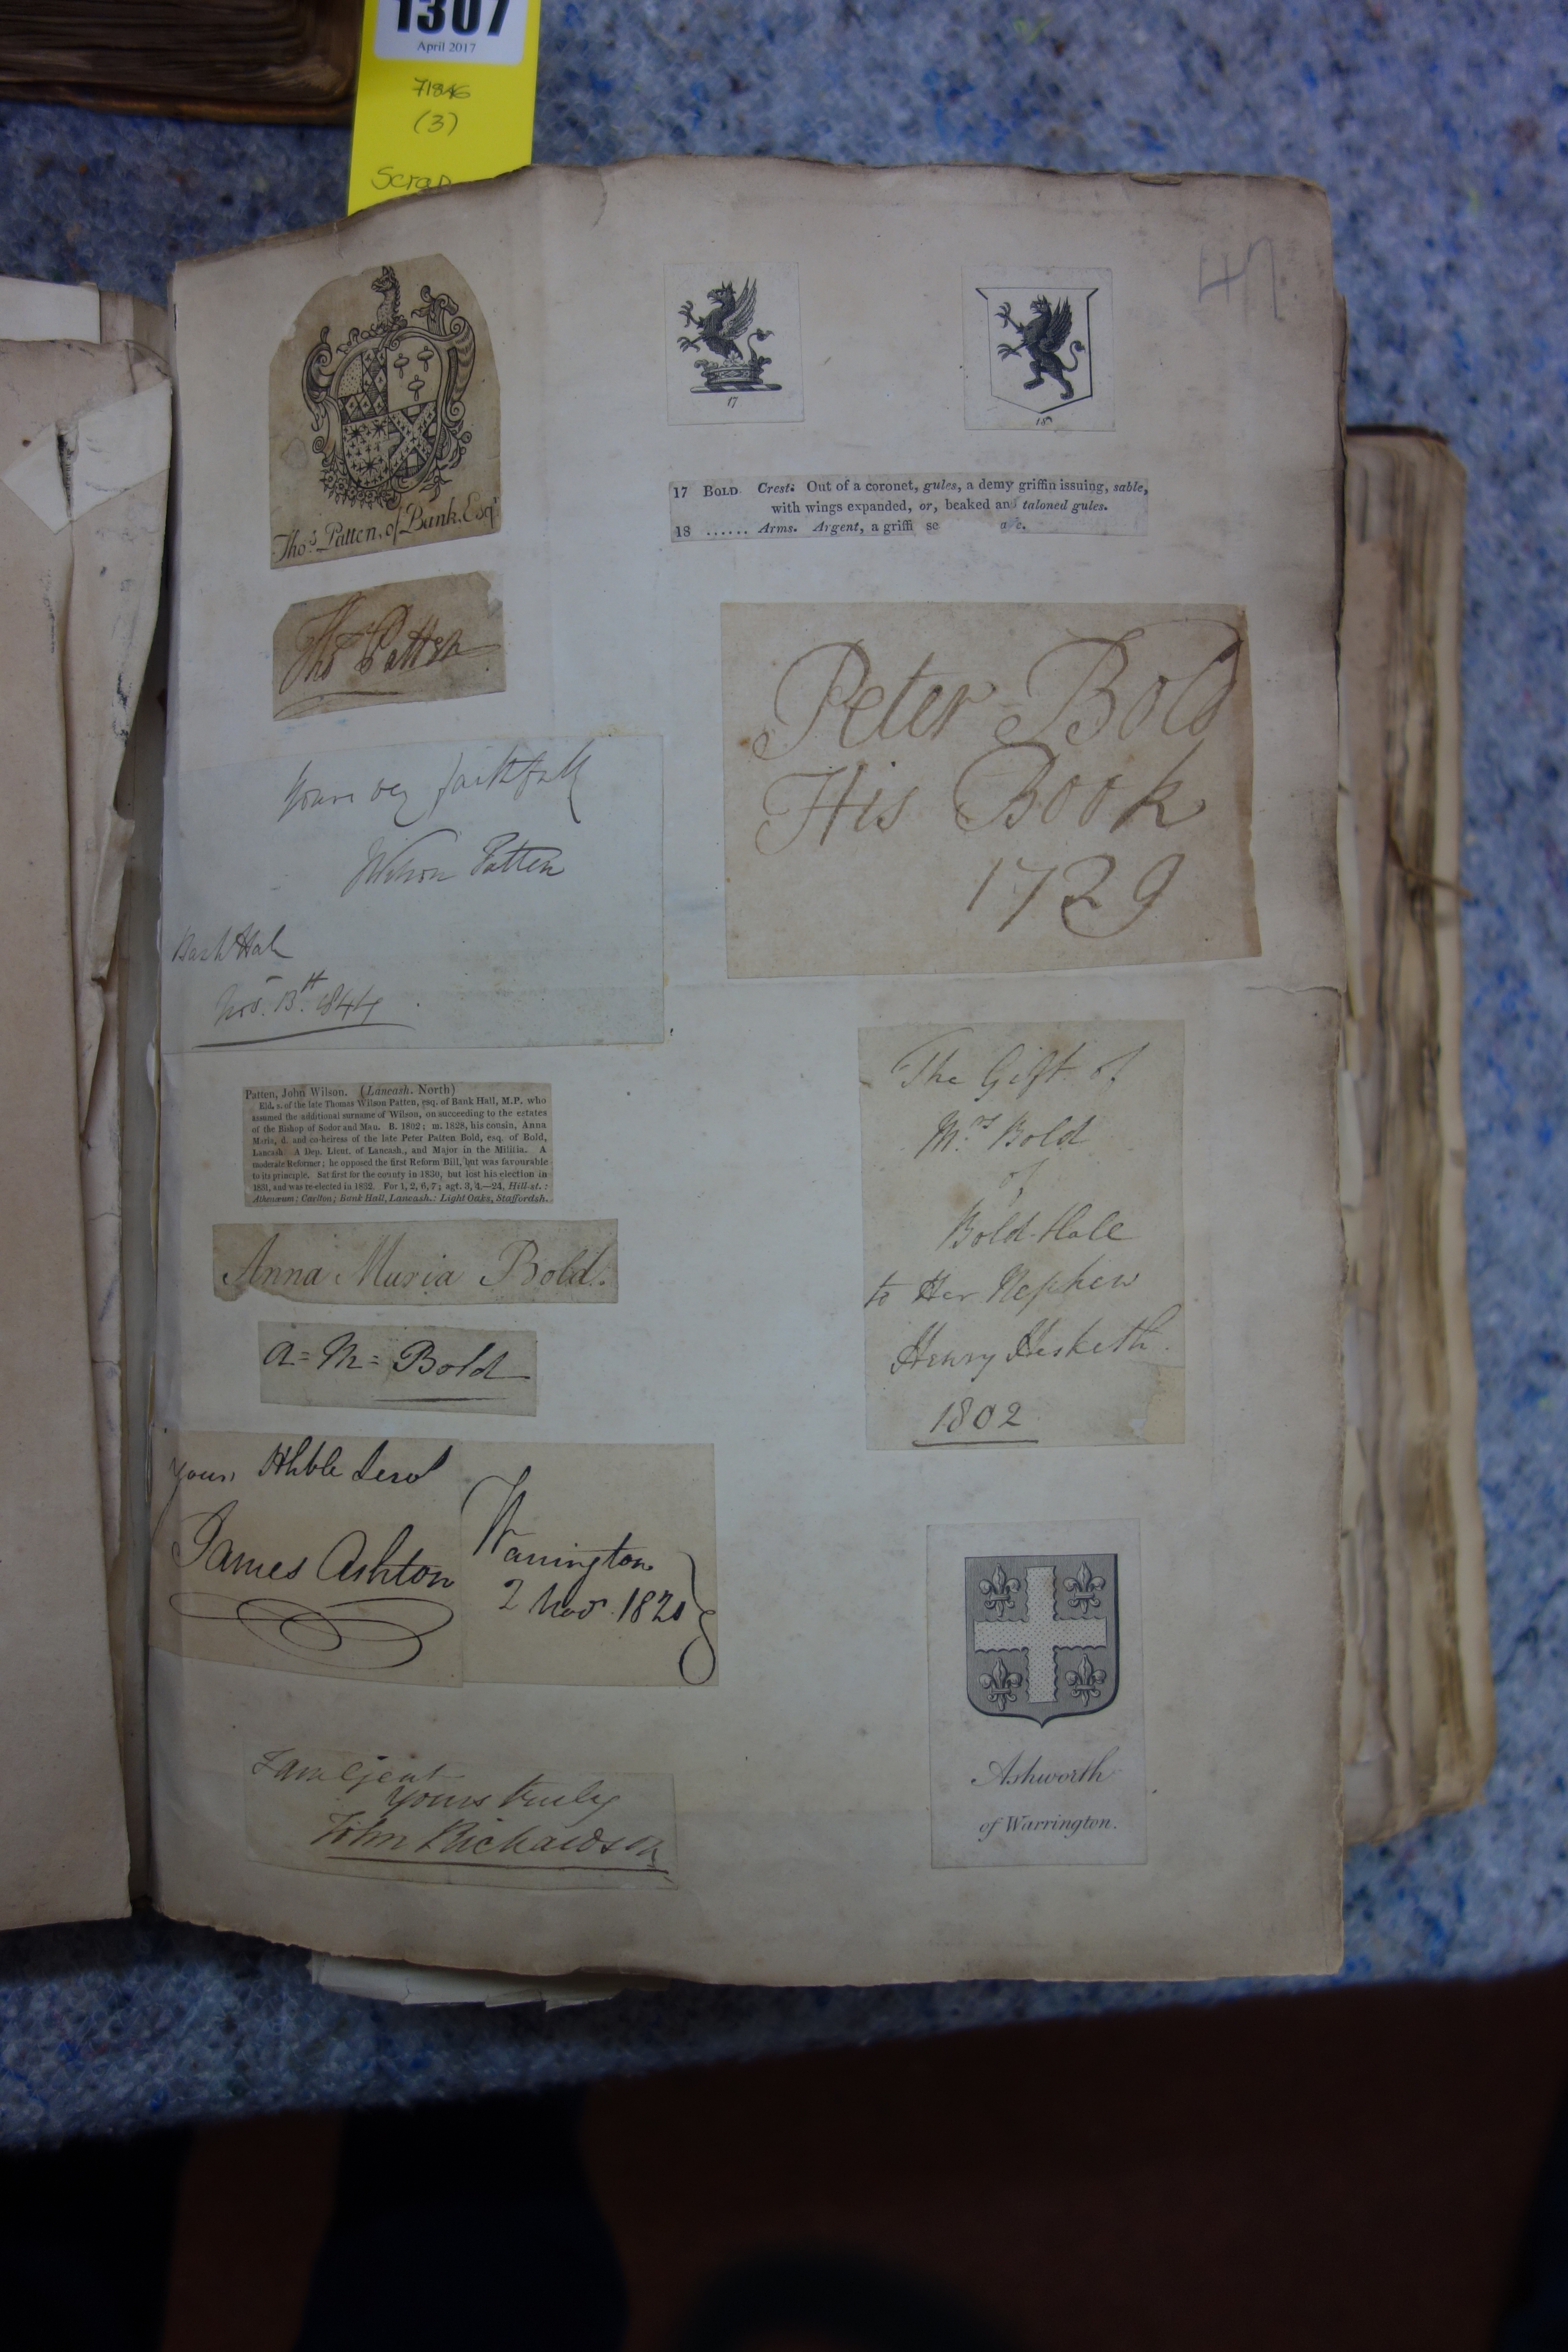 1307
April 2017
71846
(3)
Scrap
47
Thos. Patten, of Bank, Esqr
Thos Patten
Yours very faithfully
JWilson Patten
Bank Hall
Novr. 13th. 1844
Patten, John Wilson. (Lancash. North)
Eld. s. of the late Thomas Wilson Patten, esq. of Bank Hall, M.P. who
assumed the additional surname of Wilson, on succeeding to the estates
of the Bishop of Sodor and Man. B. 1802; m. 1828, his cousin, Anna
Maria, d. and co-heiress of the late Peter Patten Bold, esq. of Bold,
Lancash. A Dep. Lieut. of Lancash., and Major in the Militia. A
moderate Reformer; he opposed the first Reform Bill, but was favourable
to its principle. Sat first for the county in 1830, but lost his election in
1831, and was re-elected in 1832. For 1, 2, 6, 7; agt. 3, 4.—24, Hill-st.:
Athenæum; Carlton; Bank Hall, Lancash.: Light Oaks, Staffordsh.
Anna Maria Bold.
A=M= Bold
Your Hhble Servt
James Ashton
Warrington
2 Novr. 1821
I am Gent
Yours truly
John Richardson
17
18
17 BOLD Crest. Out of a coronet, gules, a demy griffin issuing, sable,
with wings expanded, or, beaked and taloned gules.
18 ...... Arms. Argent, a griffi se a c.
Peter Bold
His Book
1729
The Gift of
Mrs Bold
of
Bold-Hall
to Her Nephew
Henry Hesketh.
1802
Ashworth
of Warrington.